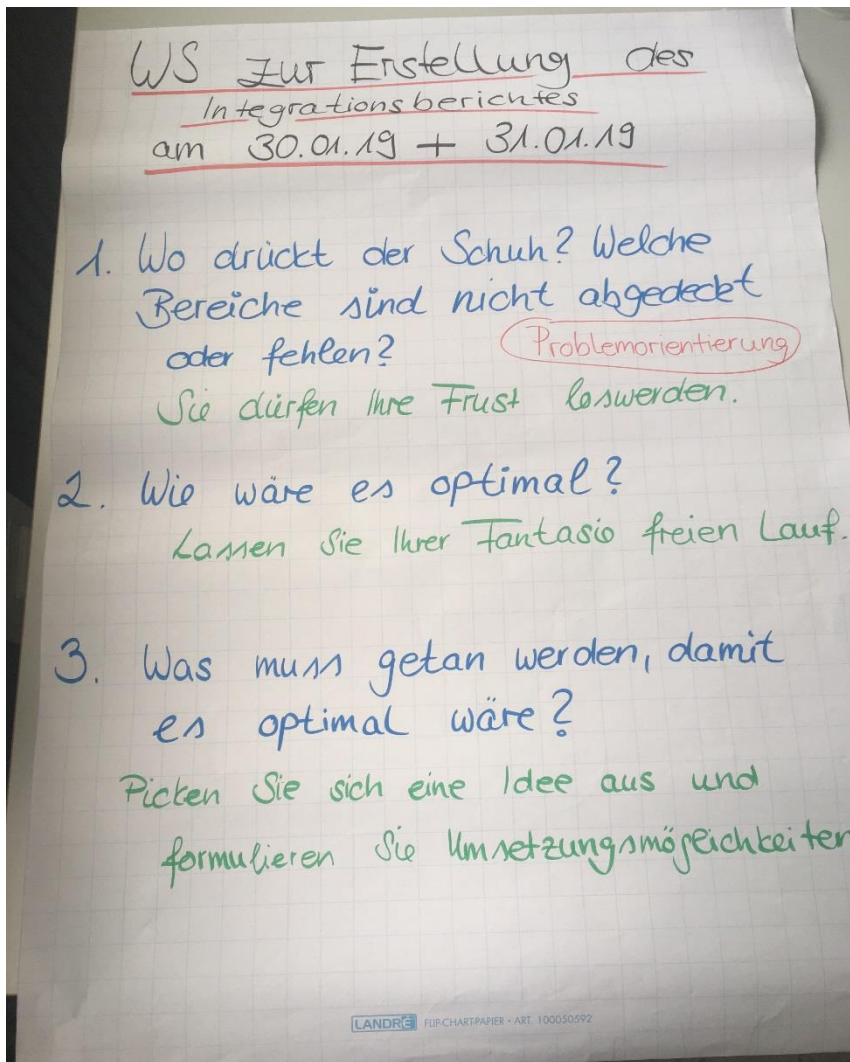 WS zur Erstellung des
Integrationsberichtes
am 30.01.19 + 31.01.19
1. Wo drückt der Schuh? Welche
Bereiche sind nicht abgedeckt
oder fehlen?
Problemorientierung
Sie dürfen Ihre Frust loswerden.
2. Wie wäre es optimal?
Lassen Sie Ihrer Fantasie freien Lauf.
3. Was muss getan werden, damit
es optimal wäre?
Picken Sie sich eine Idee aus und
formulieren Sie Umsetzungsmöglichkeiten
LANDRÉ FLIP-CHART-PAPIER • ART. 100050592